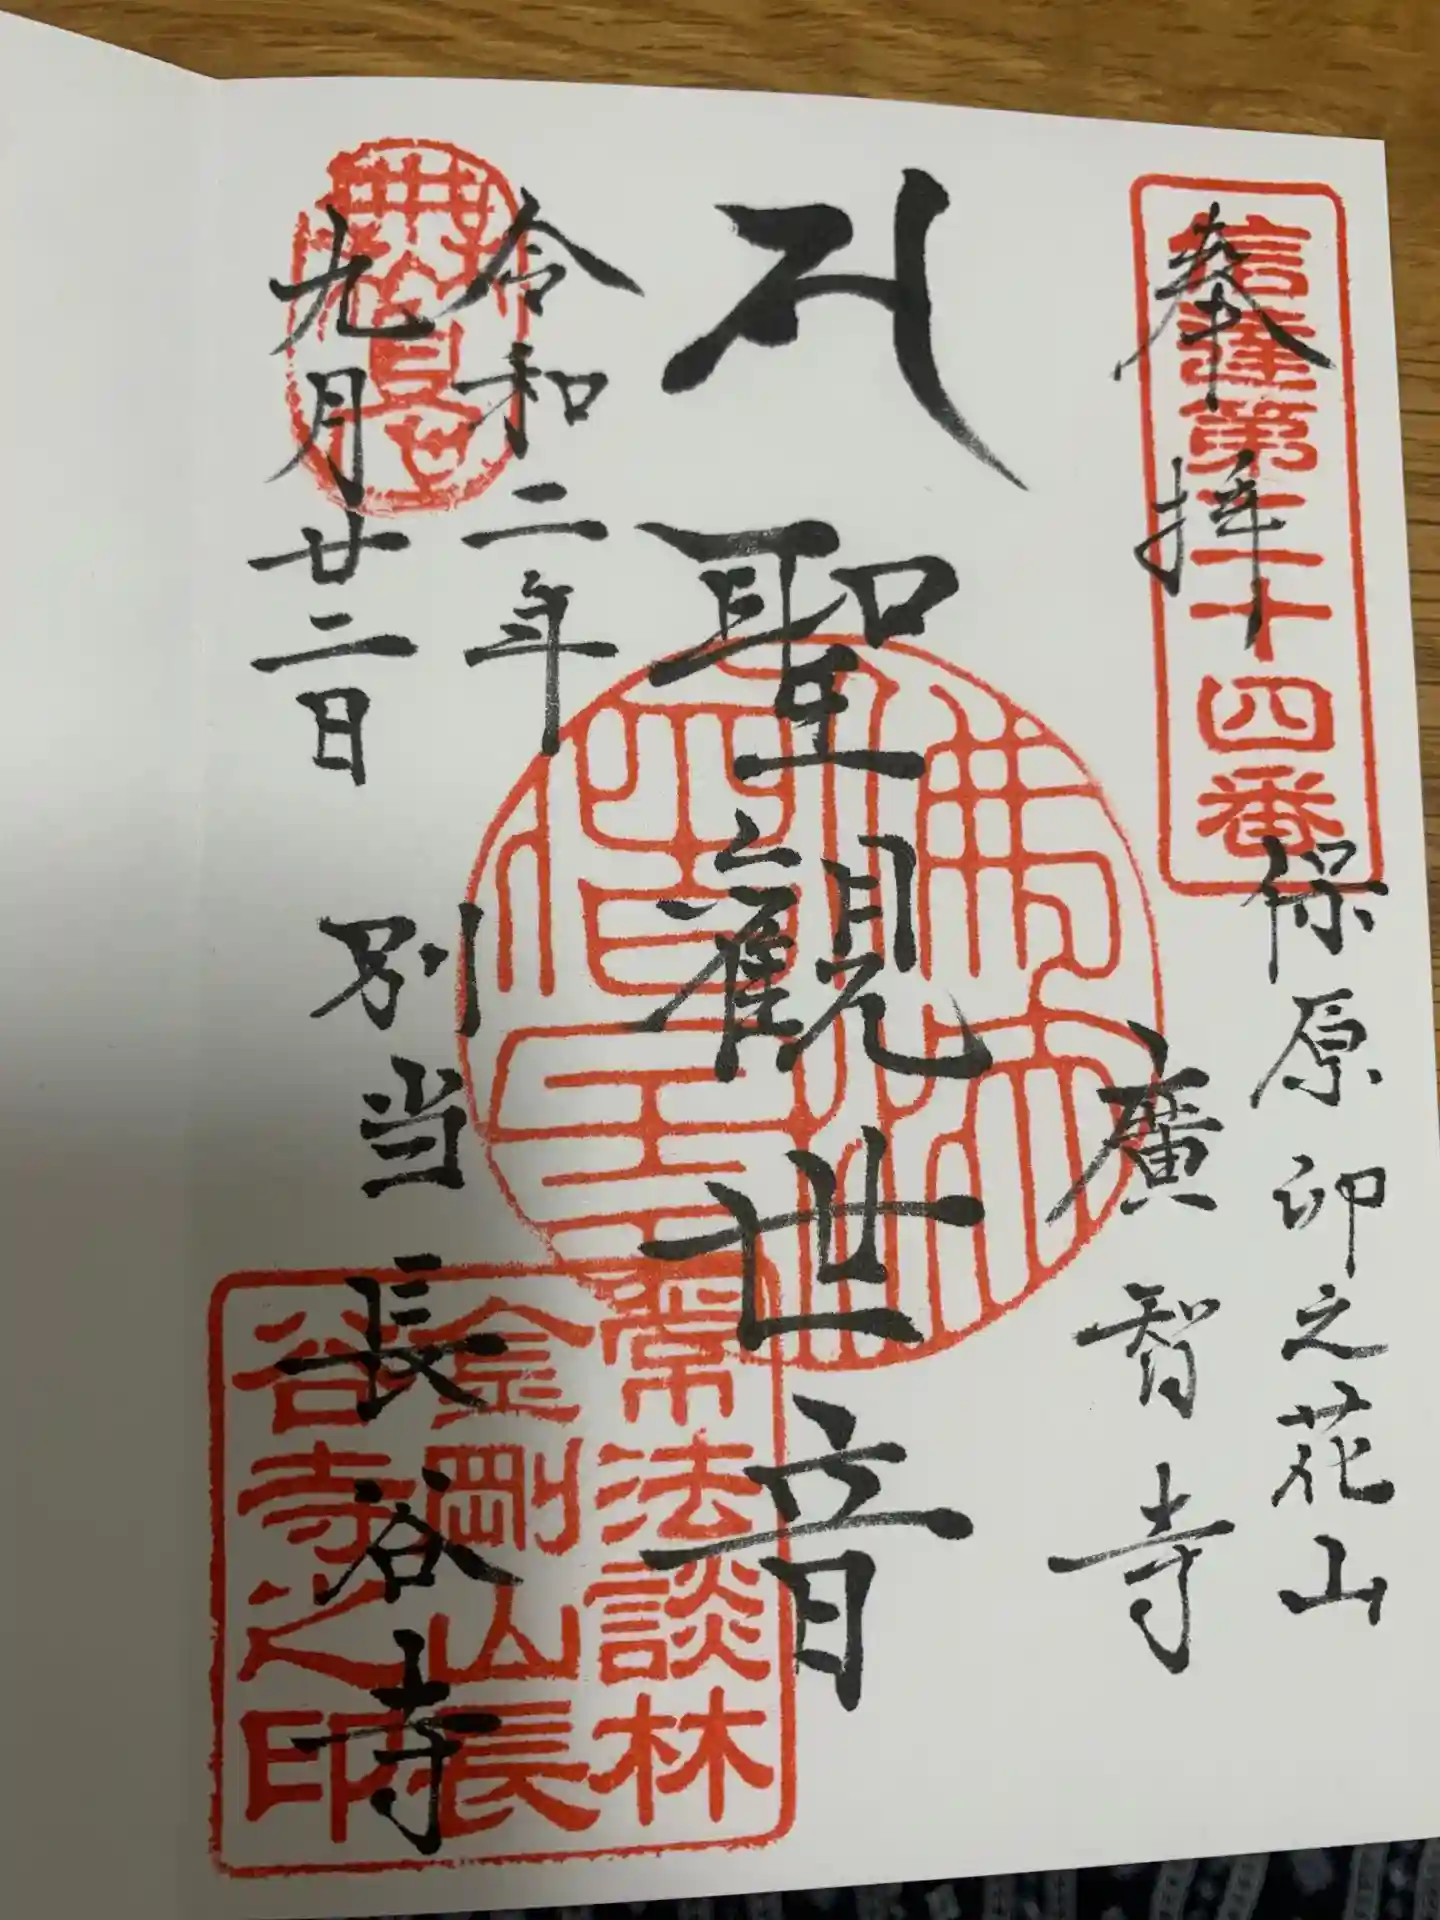 奉拝
信達第二十四番
保原卯之花山
廣智寺
聖觀世音
佛法僧宝
令和二年
九月廿二日
別当長谷寺
常法談林
金剛山長
谷寺之印